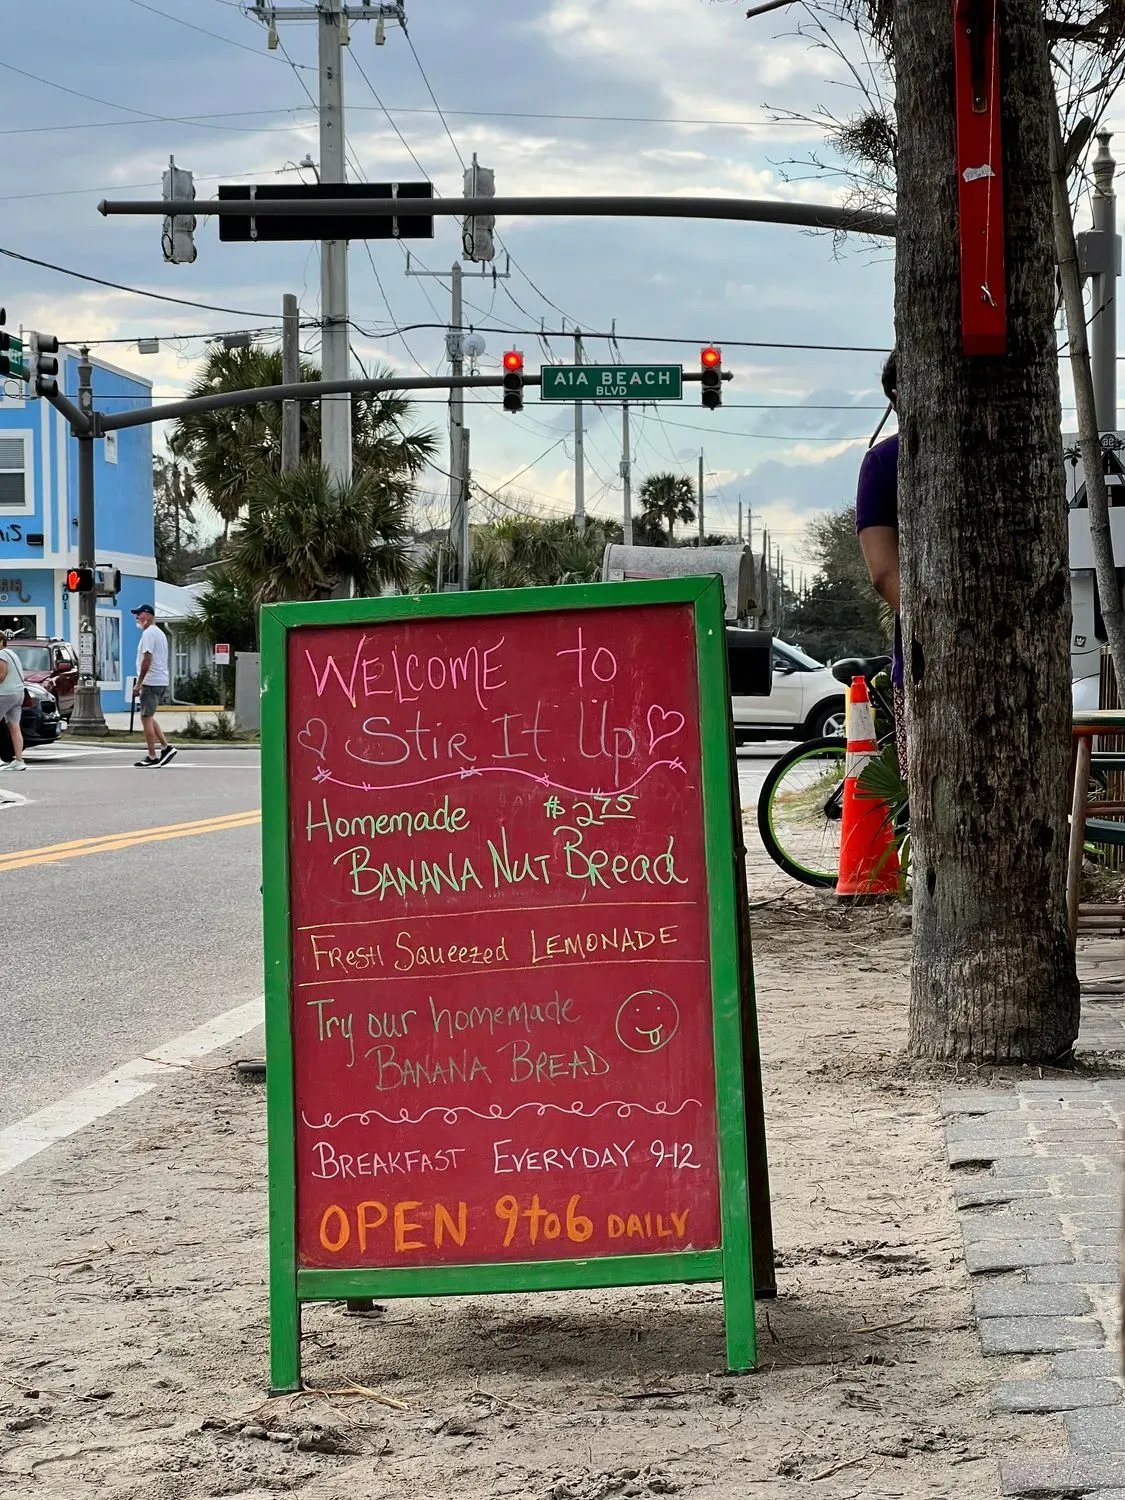 A1A BEACH
BLVD
WELCOME to
Stir It Up
Homemade $2.75
BANANA NUT Bread
FResH Squeezed LEMONADE
Try our homemade
BANANA BREAD
BREAKFAST EVERYDAY 9-12
OPEN 9to6 DAILY
701